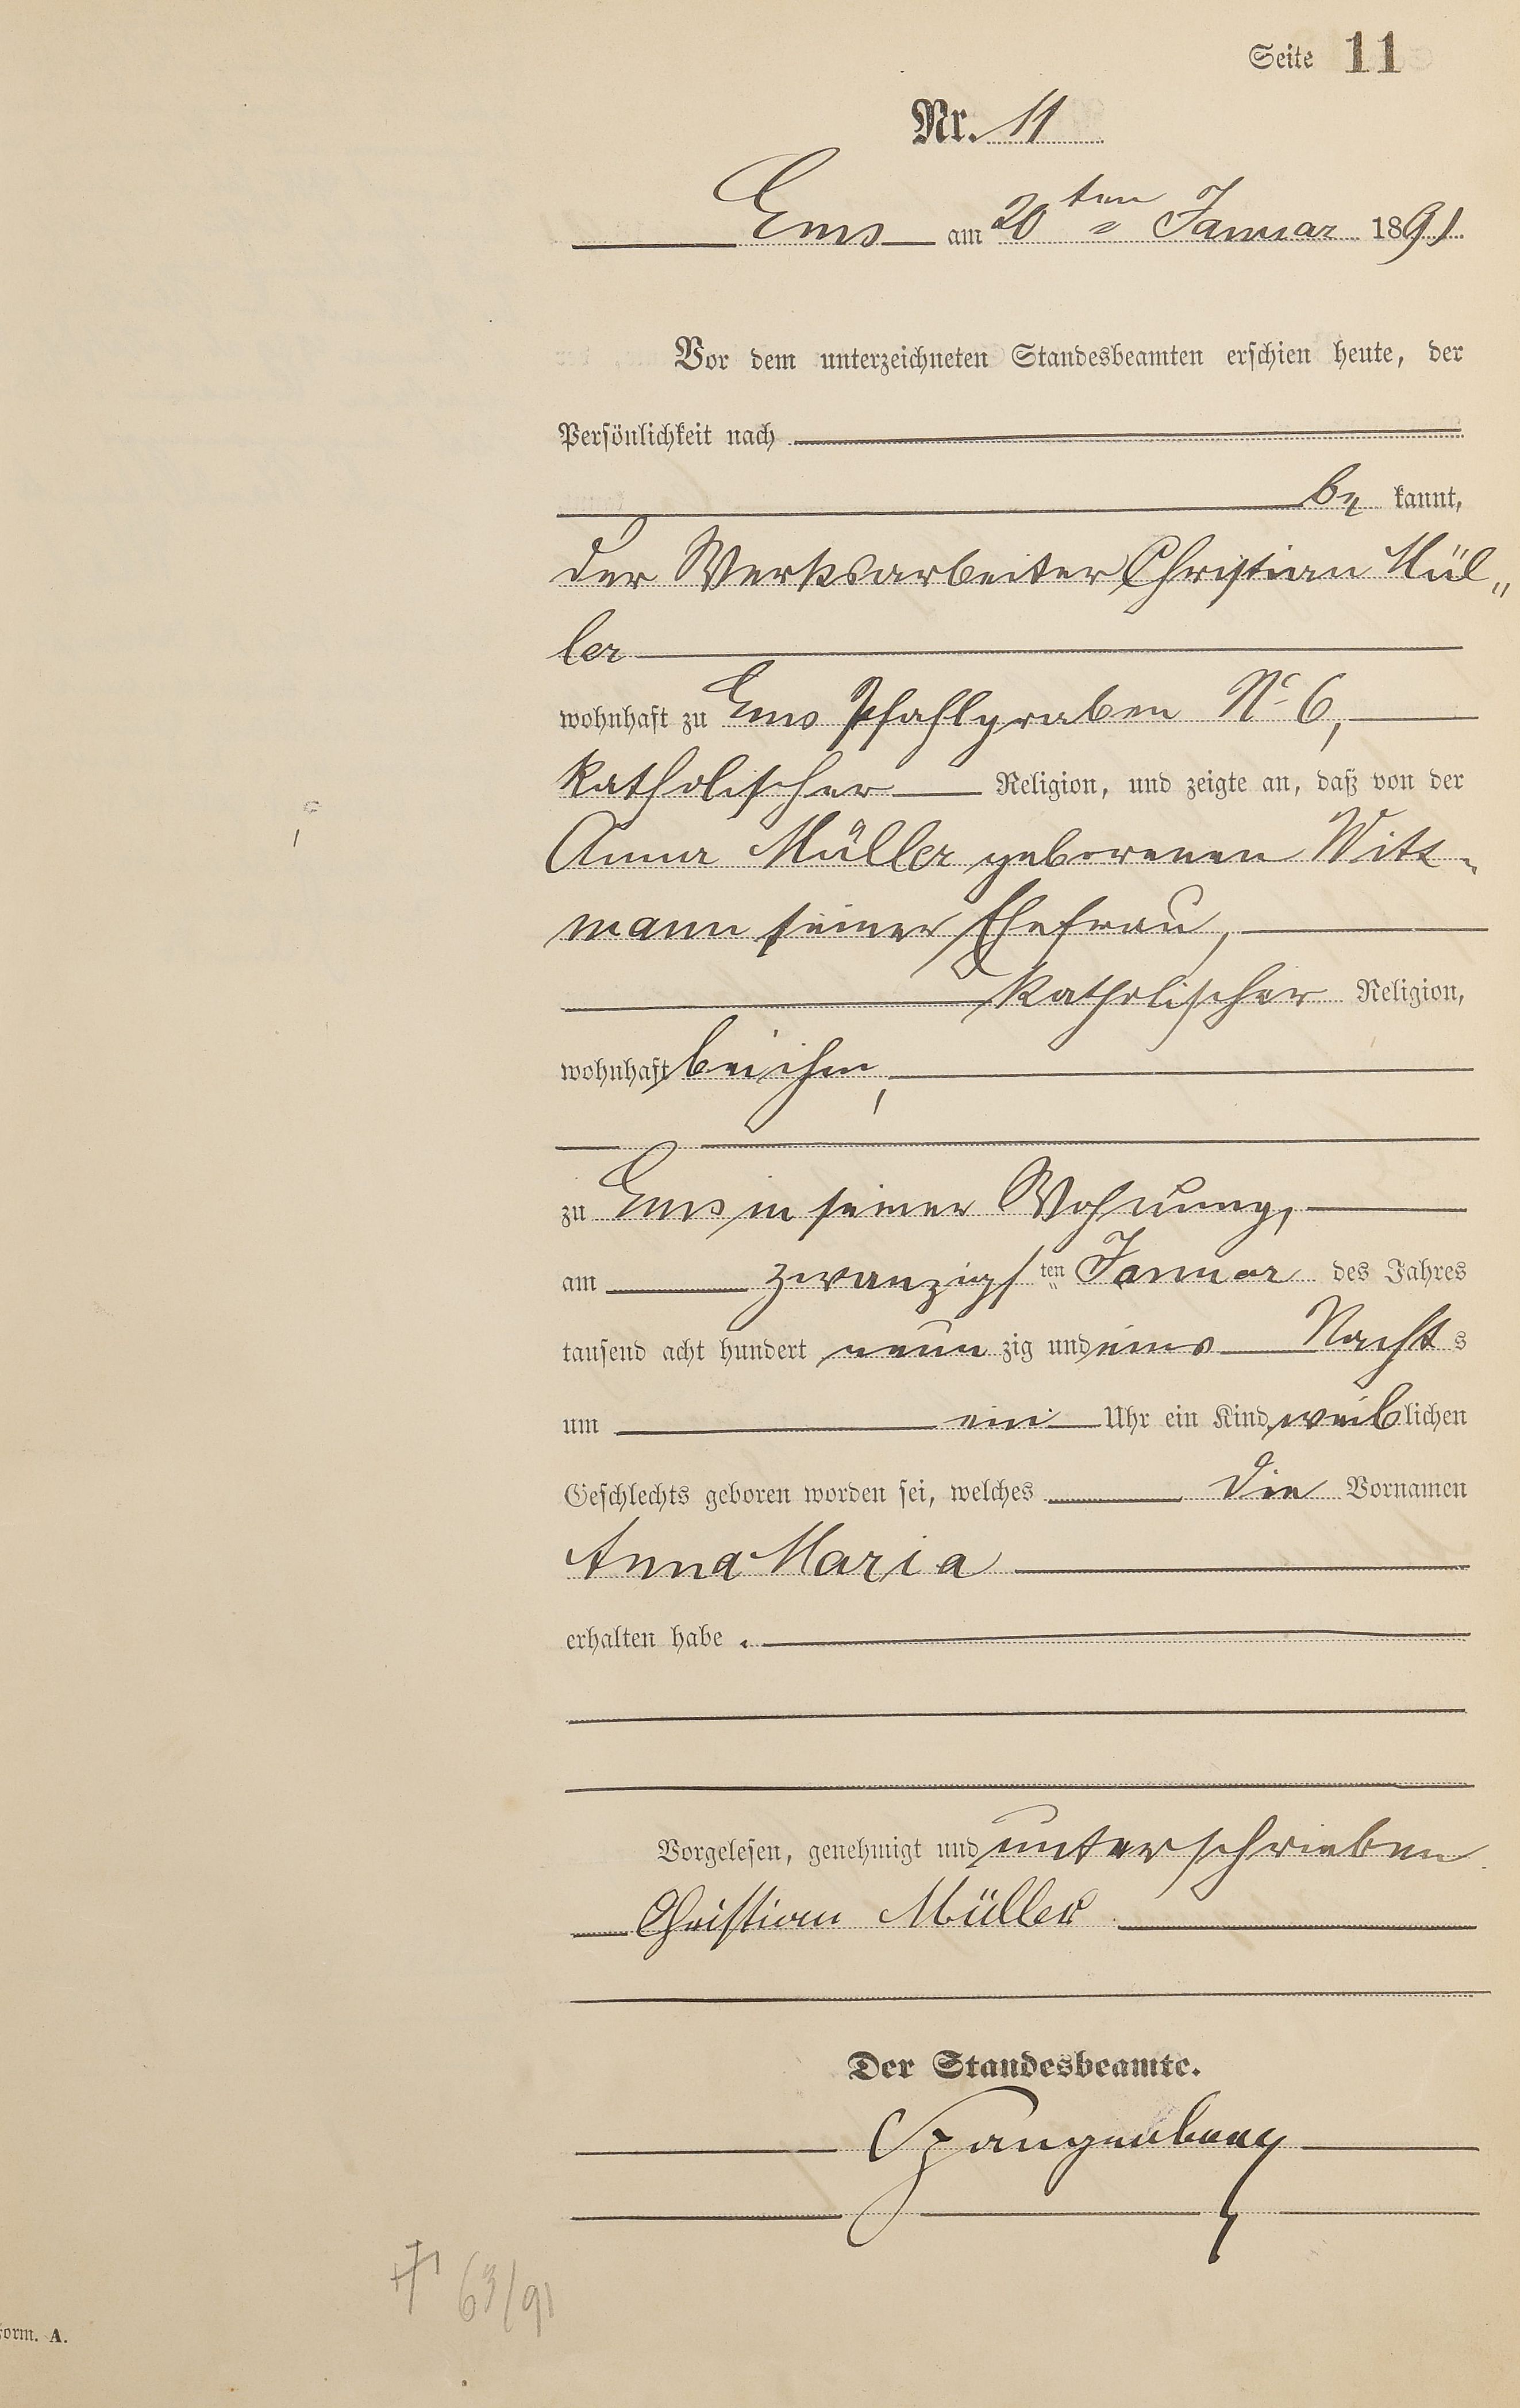 Seite 11
Nr. 11
Ems am 20ten Januar 1891
Vor dem unterzeichneten Standesbeamten erschien heute, der
Persönlichkeit nach
be kannt,
der Werksarbeiter Christian Mül„
ler
wohnhaft zu Ems Pfahlgraben No 6,
katholischer Religion, und zeigte an, daß von der
Anna Müller geborenen Witt-
mann seiner Ehefrau,
katholischer Religion,
wohnhaft bei ihm,
zu Ems in seiner Wohnung,
am zwanzigsten Januar des Jahres
tausend acht hundert neunzig und eins Nachts
um ein Uhr ein Kind weiblichen
Geschlechts geboren worden sei, welches die Vornamen
Anna Maria
erhalten habe.
Vorgelesen, genehmigt und unterschrieben
Christian Müller
Der Standesbeamte.
Spangenberg
† 63/91
Form. A.